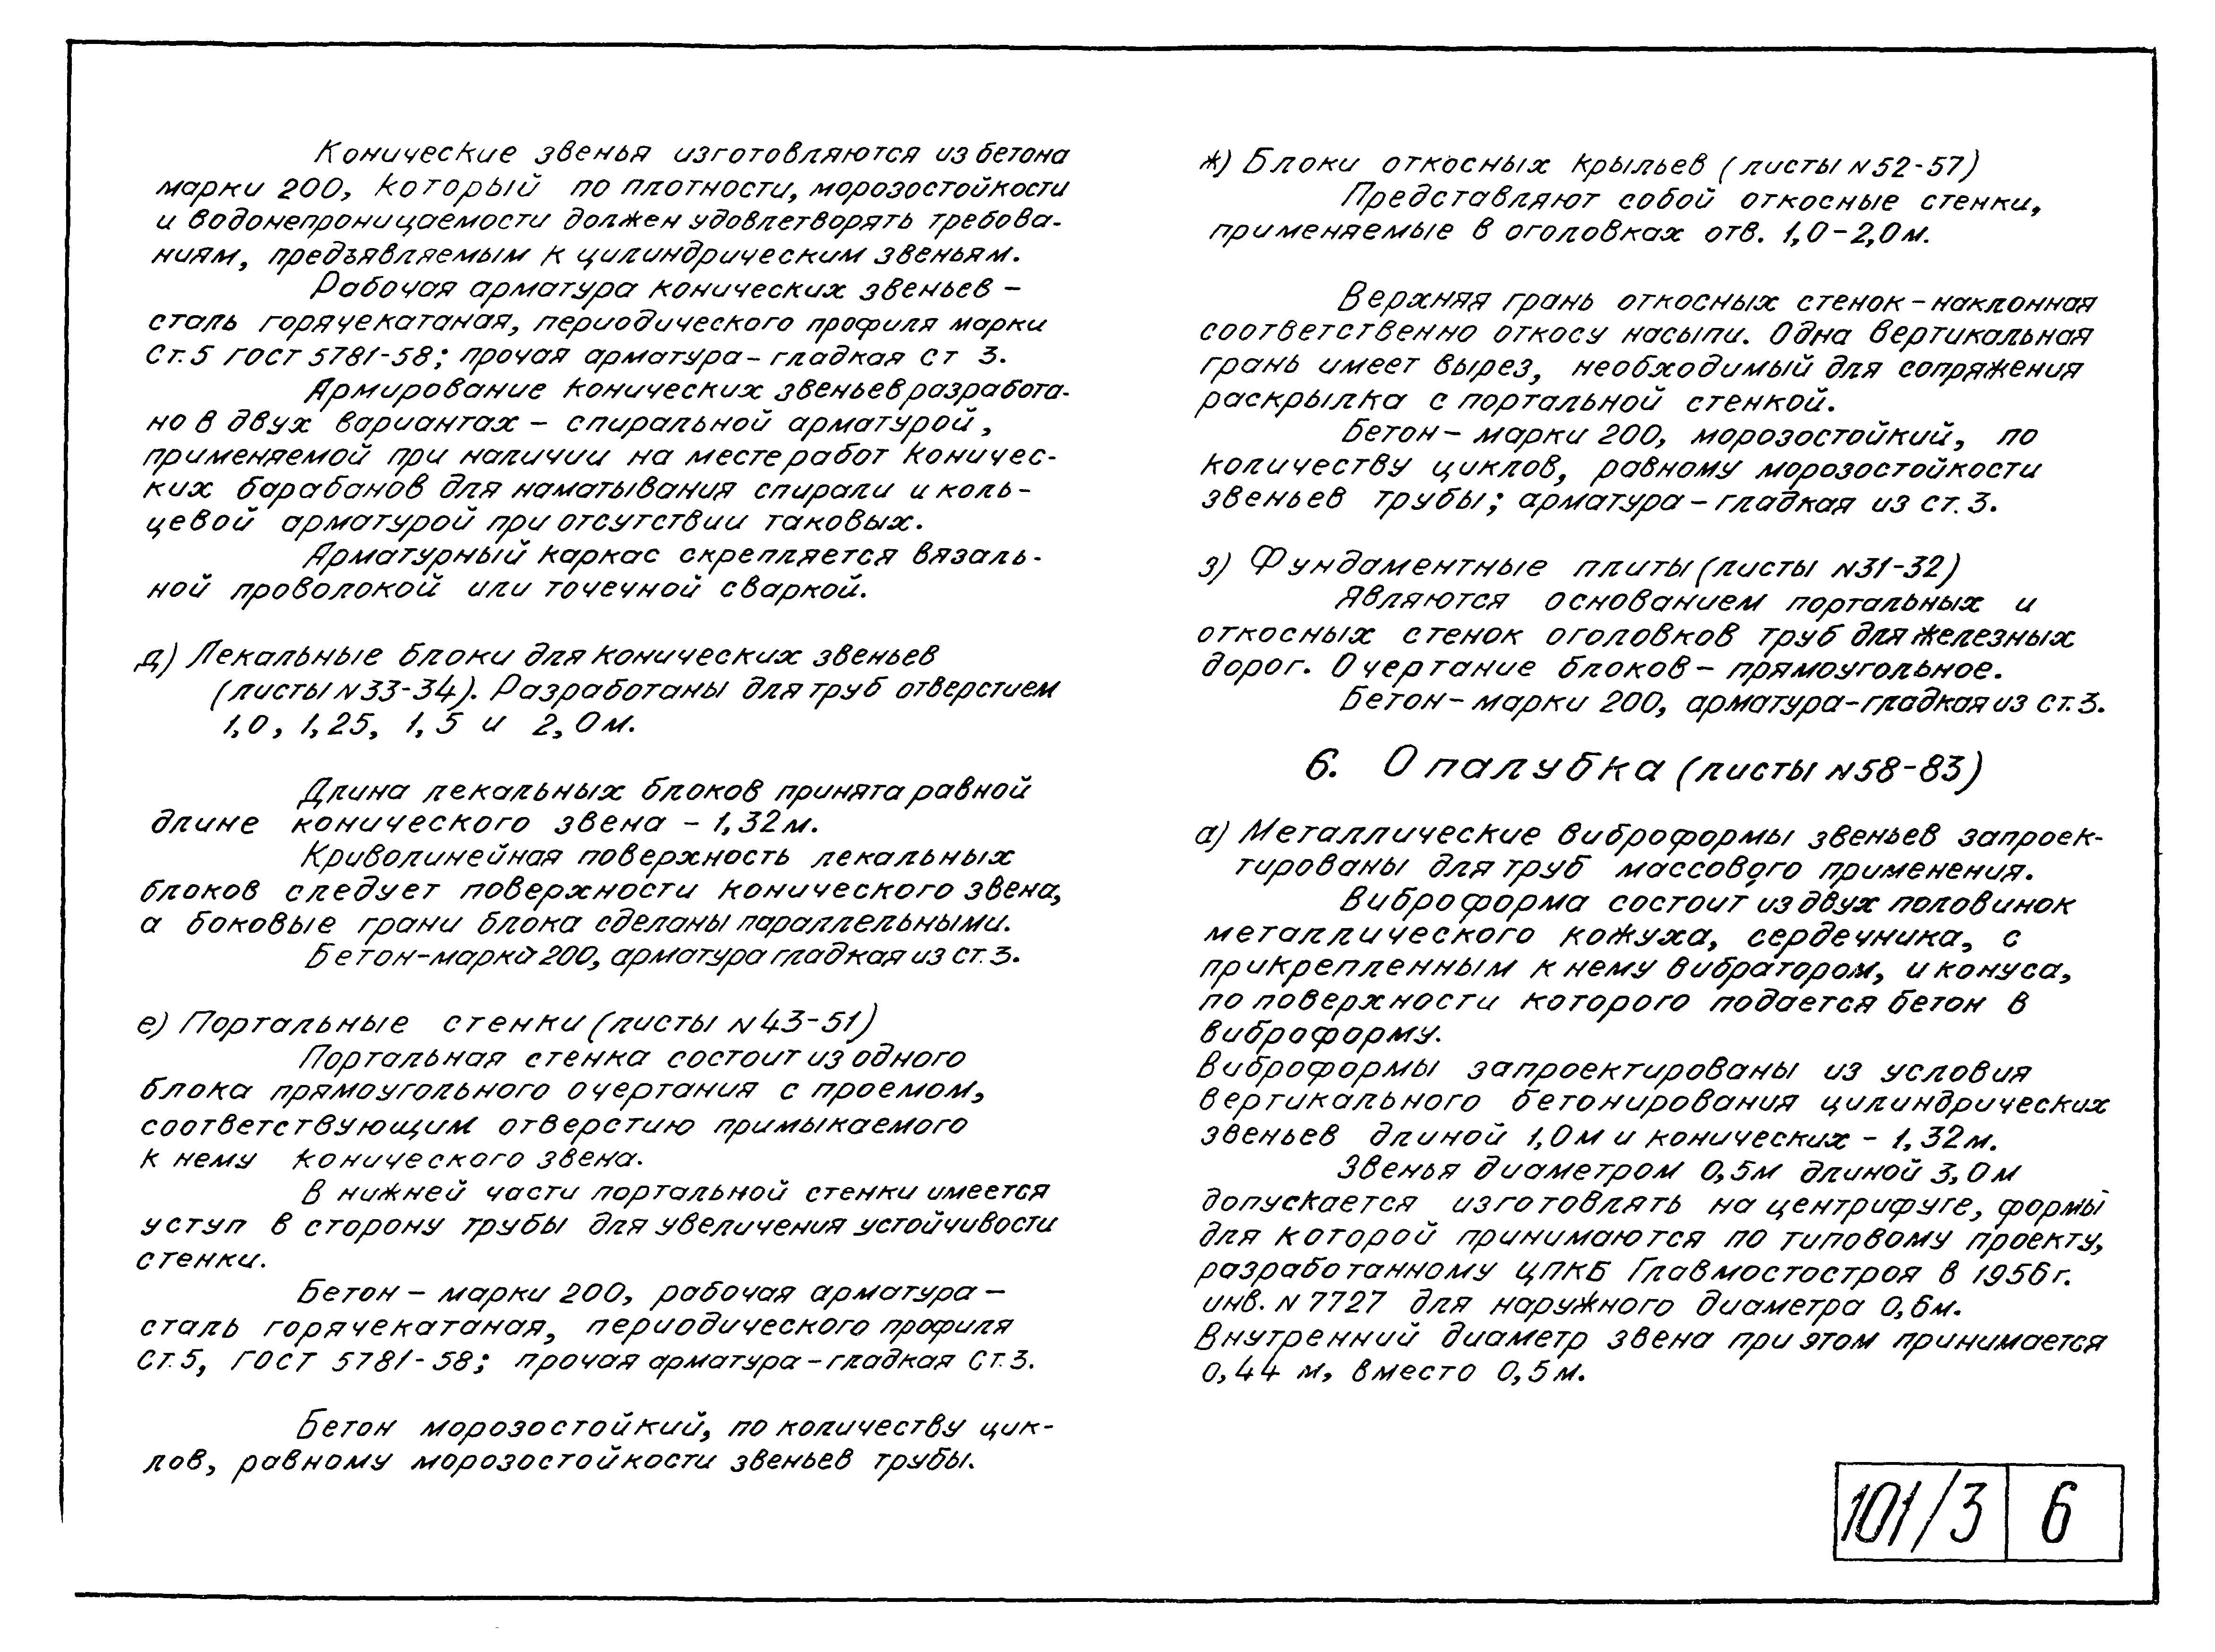 Конические звенья изготовляются из бетона
марки 200, который по плотности, морозостойкости
и водонепроницаемости должен удовлетворять требова-
ниям, предъявляемым к цилиндрическим звеньям.
Рабочая арматура конических звеньев –
сталь горячекатаная, периодического профиля марки
Ст.5 гост 5781-58; прочая арматура – гладкая ст 3.
Армирование конических звеньев разработа-
но в двух вариантах – спиральной арматурой,
применяемой при наличии на месте работ коничес-
ких барабанов для наматывания спирали и коль-
цевой арматурой при отсутствии таковых.
Арматурный каркас скрепляется вязаль-
ной проволокой или точечной сваркой.
д) Лекальные блоки для конических звеньев
(листы N 33-34). Разработаны для труб отверстием
1,0, 1,25, 1,5 и 2,0 м.
Длина лекальных блоков принята равной
длине конического звена – 1,32 м.
Криволинейная поверхность лекальных
блоков следует поверхности конического звена,
а боковые грани блока сделаны параллельными.
Бетон-марки 200, арматура гладкая из ст.3.
е) Портальные стенки (листы N 43-51)
Портальная стенка состоит из одного
блока прямоугольного очертания с проемом,
соответствующим отверстию примыкаемого
к нему конического звена.
В нижней части портальной стенки имеется
уступ в сторону трубы для увеличения устойчивости
стенки.
Бетон – марки 200, рабочая арматура –
сталь горячекатаная, периодического профиля
Ст.5, ГОСТ 5781-58; прочая арматура – гладкая Ст.3.
Бетон морозостойкий, по количеству цик-
лов, равному морозостойкости звеньев трубы.
ж) Блоки откосных крыльев (листы N 52-57)
Представляют собой откосные стенки,
применяемые в оголовках отв. 1,0–2,0 м.
Верхняя грань откосных стенок – наклонная
соответственно откосу насыпи. Одна вертикальная
грань имеет вырез, необходимый для сопряжения
раскрылка с портальной стенкой.
Бетон – марки 200, морозостойкий, по
количеству циклов, равному морозостойкости
звеньев трубы; арматура – гладкая из ст.3.
з) Фундаментные плиты (листы N 31-32)
Являются основанием портальных и
откосных стенок оголовков труб для железных
дорог. Очертание блоков – прямоугольное.
Бетон – марки 200, арматура – гладкая из ст.3.
6. Опалубка (листы N 58-83)
а) Металлические виброформы звеньев запроек-
тированы для труб массового применения.
Виброформа состоит из двух половинок
металлического кожуха, сердечника, с
прикрепленным к нему вибратором, и конуса,
по поверхности которого подается бетон в
виброформу.
Виброформы запроектированы из условия
вертикального бетонирования цилиндрических
звеньев длиной 1,0 м и конических – 1,32 м.
Звенья диаметром 0,5 м длиной 3,0 м
допускается изготовлять на центрифуге, формы
для которой принимаются по типовому проекту,
разработанному ЦПКБ Главмостостроя в 1956 г.
инв. N 7727 для наружного диаметра 0,6 м.
Внутренний диаметр звена при этом принимается
0,44 м, вместо 0,5 м.
101/3 6